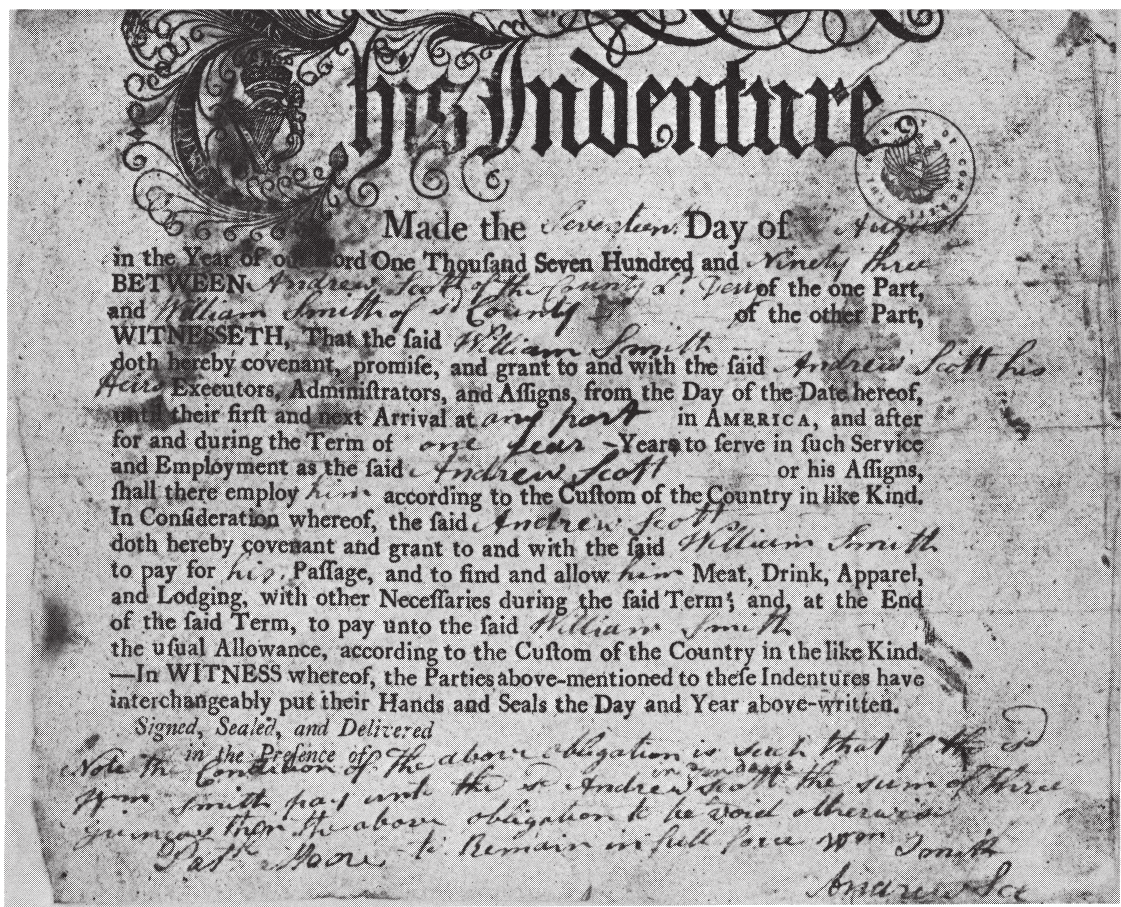 This Indenture
THE LIBRARY OF CONGRESS
Made the Seventeenth Day of August
in the Year of our Lord One Thouſand Seven Hundred and Ninety three
BETWEEN Andrew Scott of the County of of the one Part,
and William Smith of sd County of the other Part,
WITNESSETH, That the ſaid William Smith
doth hereby covenant, promiſe, and grant to and with the ſaid Andrew Scott his
Heirs Executors, Adminiſtrators, and Aſſigns, from the Day of the Date hereof,
until their firſt and next Arrival at any port in AMERICA, and after
for and during the Term of one year Years to ſerve in ſuch Service
and Employment as the ſaid Andrew Scott or his Aſſigns,
ſhall there employ him according to the Cuſtom of the Country in like Kind.
In Conſideration whereof, the ſaid Andrew Scott
doth hereby covenant and grant to and with the ſaid William Smith
to pay for his Paſſage, and to find and allow him Meat, Drink, Apparel,
and Lodging, with other Neceſſaries during the ſaid Term; and, at the End
of the ſaid Term, to pay unto the ſaid William Smith
the uſual Allowance, according to the Cuſtom of the Country in the like Kind.
—In WITNESS whereof, the Parties above-mentioned to theſe Indentures have
interchangeably put their Hands and Seals the Day and Year above-written.
Signed, Sealed, and Delivered
in the Preſence of
Note the Condition of the above obligation is such that if the sd
Wm Smith pay unto the sd Andrew Scott the sum of three
guineas then the above obligation to be void otherwise
to Remain in full force Wm Smith
Patk Moore
Andrew